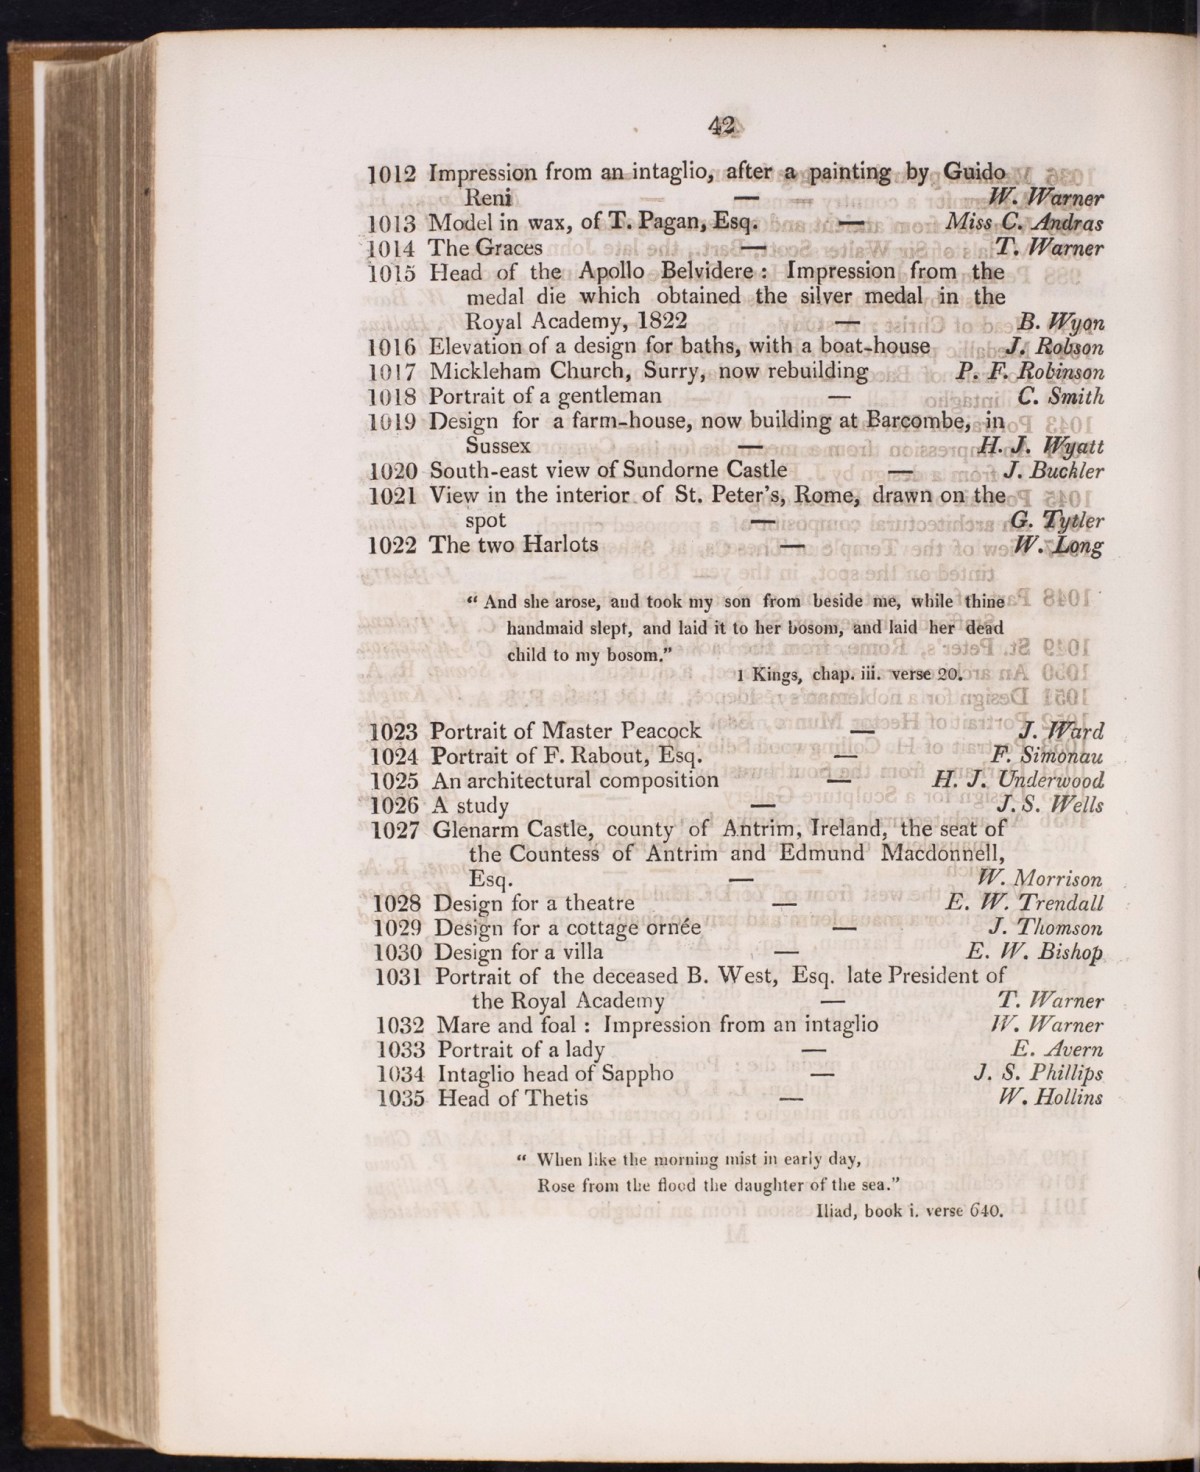 42
1012 Impression from an intaglio, after a painting by Guido
Reni — W. Warner
1013 Model in wax, of T. Pagan, Esq. — Miss C. Andras
1014 The Graces — T. Warner
1015 Head of the Apollo Belvidere : Impression from the
medal die which obtained the silver medal in the
Royal Academy, 1822 — B. Wyon
1016 Elevation of a design for baths, with a boat-house J. Robson
1017 Mickleham Church, Surry, now rebuilding P. F. Robinson
1018 Portrait of a gentleman — C. Smith
1019 Design for a farm-house, now building at Barcombe, in
Sussex — H. J. Wyatt
1020 South-east view of Sundorne Castle — J. Buckler
1021 View in the interior of St. Peter's, Rome, drawn on the
spot — G. Tytler
1022 The two Harlots — W. Long
“ And she arose, and took my son from beside me, while thine
handmaid slept, and laid it to her bosom, and laid her dead
child to my bosom.”
1 Kings, chap. iii. verse 20.
1023 Portrait of Master Peacock — J. Ward
1024 Portrait of F. Rabout, Esq. — F. Simonau
1025 An architectural composition — H. J. Underwood
1026 A study — J. S. Wells
1027 Glenarm Castle, county of Antrim, Ireland, the seat of
the Countess of Antrim and Edmund Macdonnell,
Esq. — W. Morrison
1028 Design for a theatre — E. W. Trendall
1029 Design for a cottage ornée — J. Thomson
1030 Design for a villa — E. W. Bishop
1031 Portrait of the deceased B. West, Esq. late President of
the Royal Academy — T. Warner
1032 Mare and foal : Impression from an intaglio W. Warner
1033 Portrait of a lady — E. Avern
1034 Intaglio head of Sappho — J. S. Phillips
1035 Head of Thetis — W. Hollins
“ When like the morning mist in early day,
Rose from the flood the daughter of the sea.”
Iliad, book i. verse 640.